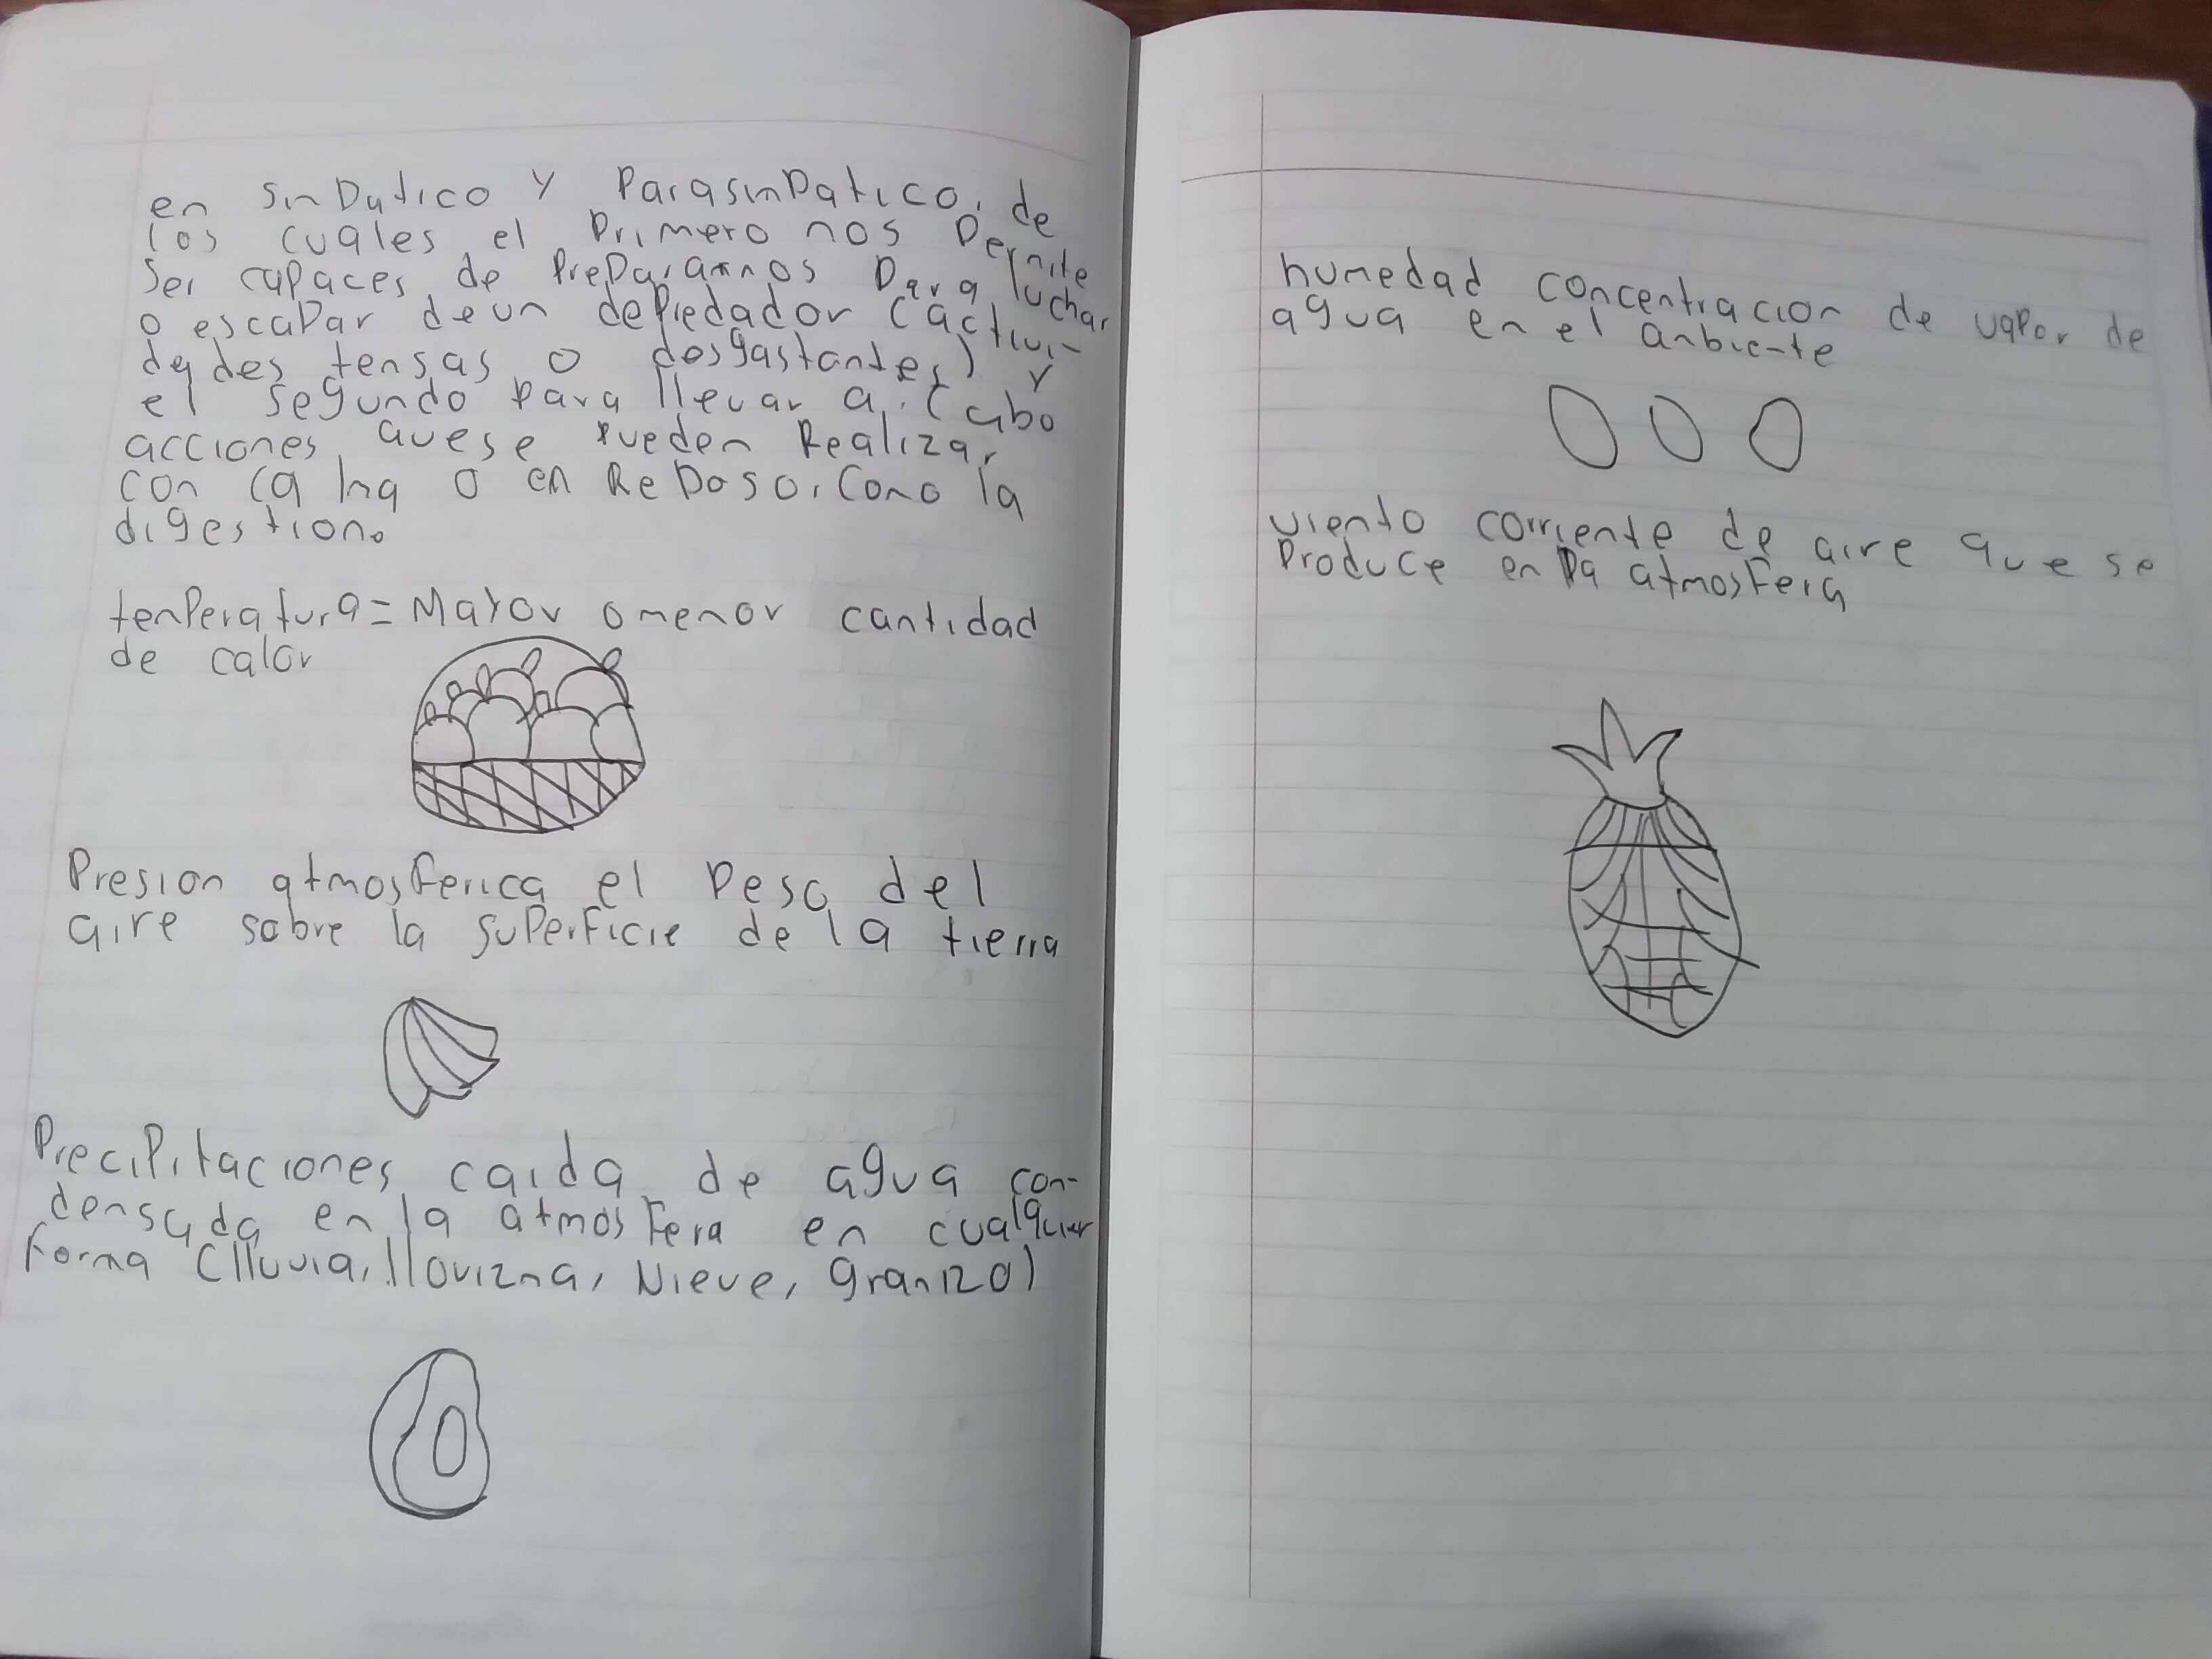 en sinpatico y parasinpatico, de
los cuales el primero nos permite
ser capaces de prepararnos para luchar
o escapar de un depredador (activi-
dades tensas o desgastantes) y
el segundo para llevar a cabo
acciones que se pueden Realizar
con calma o en Reposo, Como la
digestion.
tenperatura = Mayor o menor cantidad
de calor
Presion atmosferica el peso del
aire sobre la superficie de la tierra
Precipitaciones caida de agua con-
densada en la atmosfera en cualquier
forma (lluvia, llovizna, Nieve, granizo)
humedad concentracion de vapor de
agua en el anbiente
viento corriente de aire que se
produce en la atmosfera